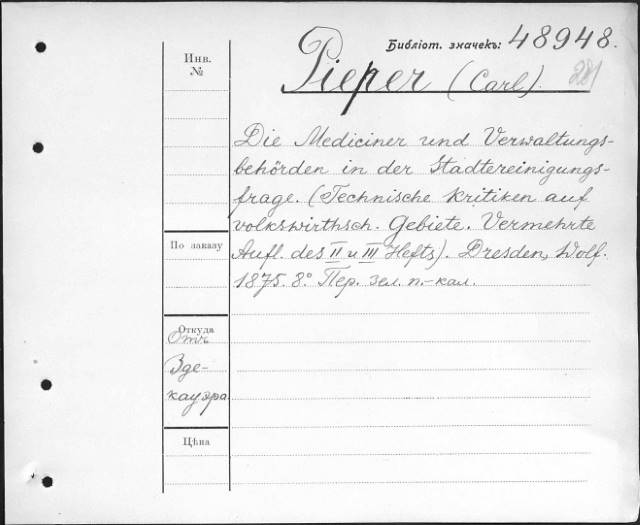 Библіот. значекъ: 48948.
Инв. №
Pieper (Carl). 281
Die Mediciner und Verwaltungs-
behörden in der Städtereinigungs-
frage. (Technische Kritiken auf
volkswirthsch. Gebiete. Vermehrte
Aufl. des II u III Hefts). Dresden, Wolf.
1875. 8° Пер. зел. п.-кал.
По заказу
Откуда
Отъ
Зде-
кауэра
Цѣна